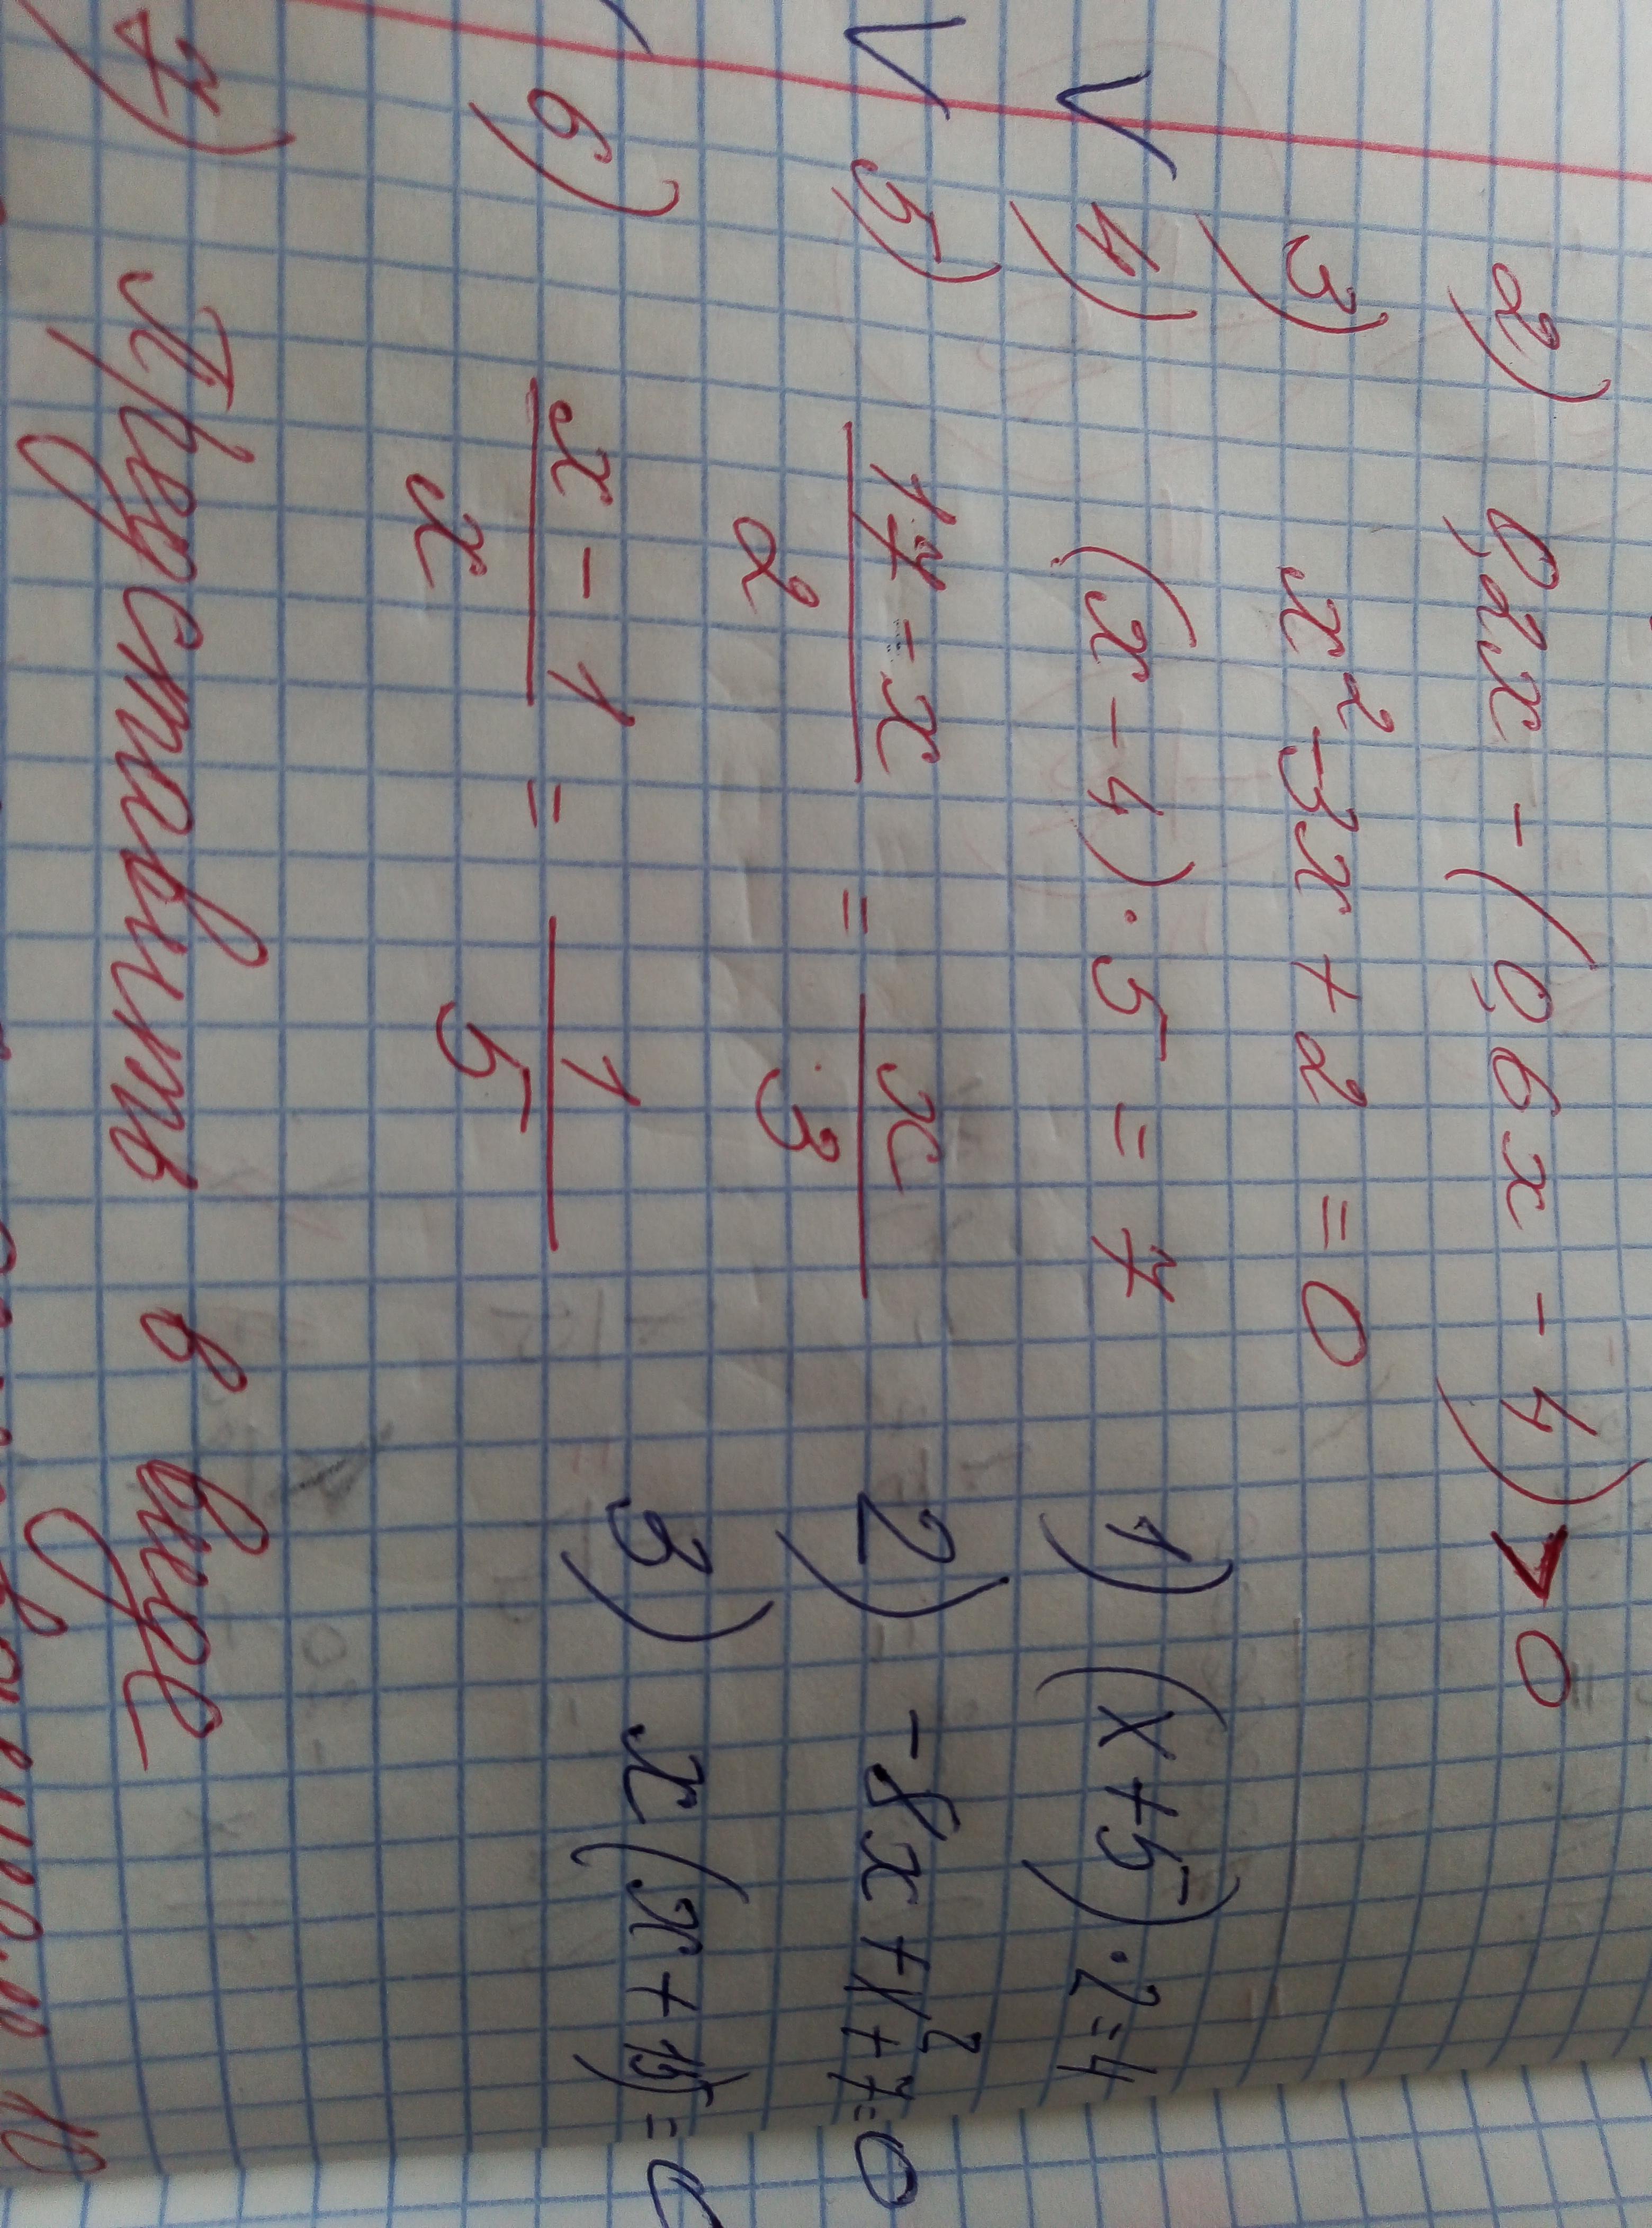 2) 0,2x - (0,6x - 4) > 0
3) x² - 3x + 2 = 0
V 4) (x - 4) · 5 = 7
1) (x + 5) · 2 = 4
V 5) \frac{17 - x}{2} = \frac{x}{3}
2) -8x + x² + 7 = 0
6) \frac{x - 1}{x} = \frac{1}{5}
3) x(x + 15) = 0
7) Представить в виде